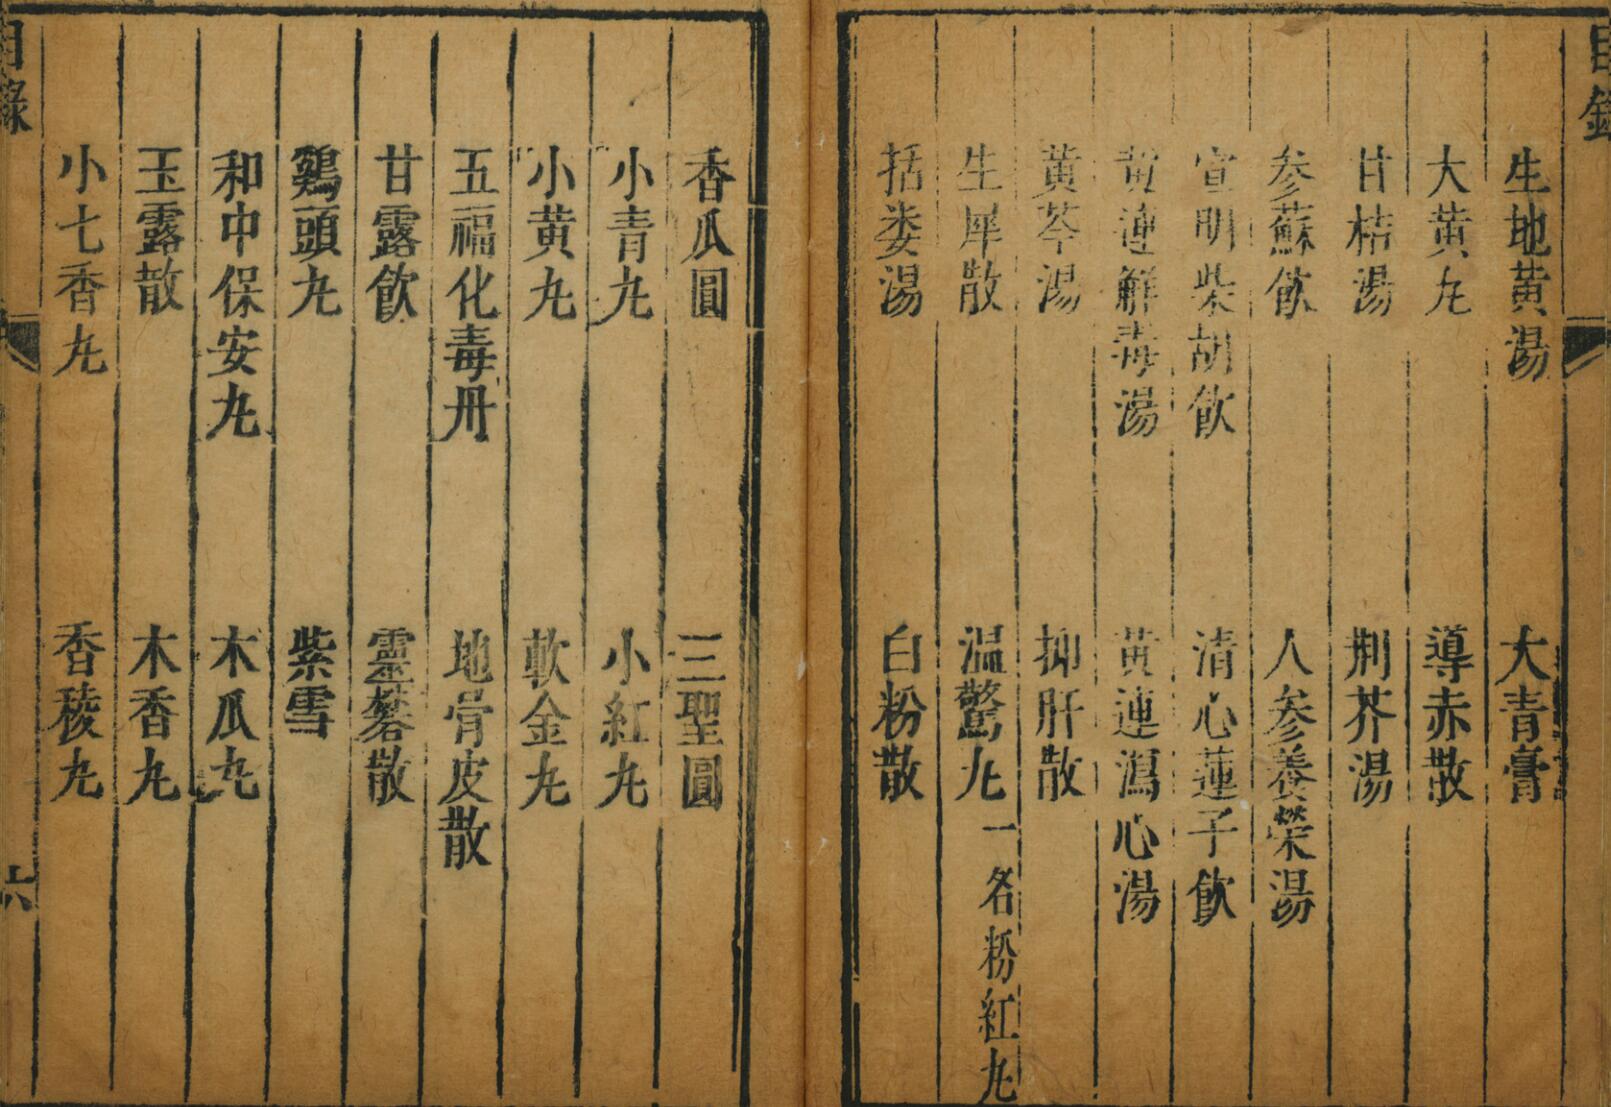 目錄
生地黄湯　大青膏
大黄丸　導赤散
甘桔湯　荆芥湯
参蘇飲　人参養榮湯
宣明柴胡飲　清心蓮子飲
黄連解毒湯　黄連瀉心湯
黄芩湯　抑肝散
生犀散　温驚丸一名粉紅丸
括蒌湯　白粉散
香瓜圓　三聖圓
小青丸　小紅丸
小黄丸　軟金丸
五福化毒丹　地骨皮散
甘露飲　靈礬散
鷄頭丸　紫雪
和中保安丸　木瓜丸
玉露散　木香丸
小七香丸　香稜丸
目錄　六